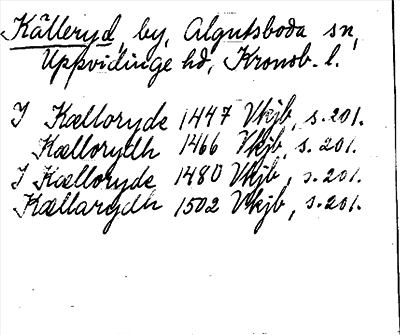 Källeryd, by, Algutsboda sn,
Uppvidinge hd, Kronob. l.
I Kælloryde 1447 Vkjb, s. 201.
Kællorydh 1466 Vkjb, s. 201.
I Kælloryde 1480 Vkjb, s. 201.
Kællarydh 1502 Vkjb, s. 201.